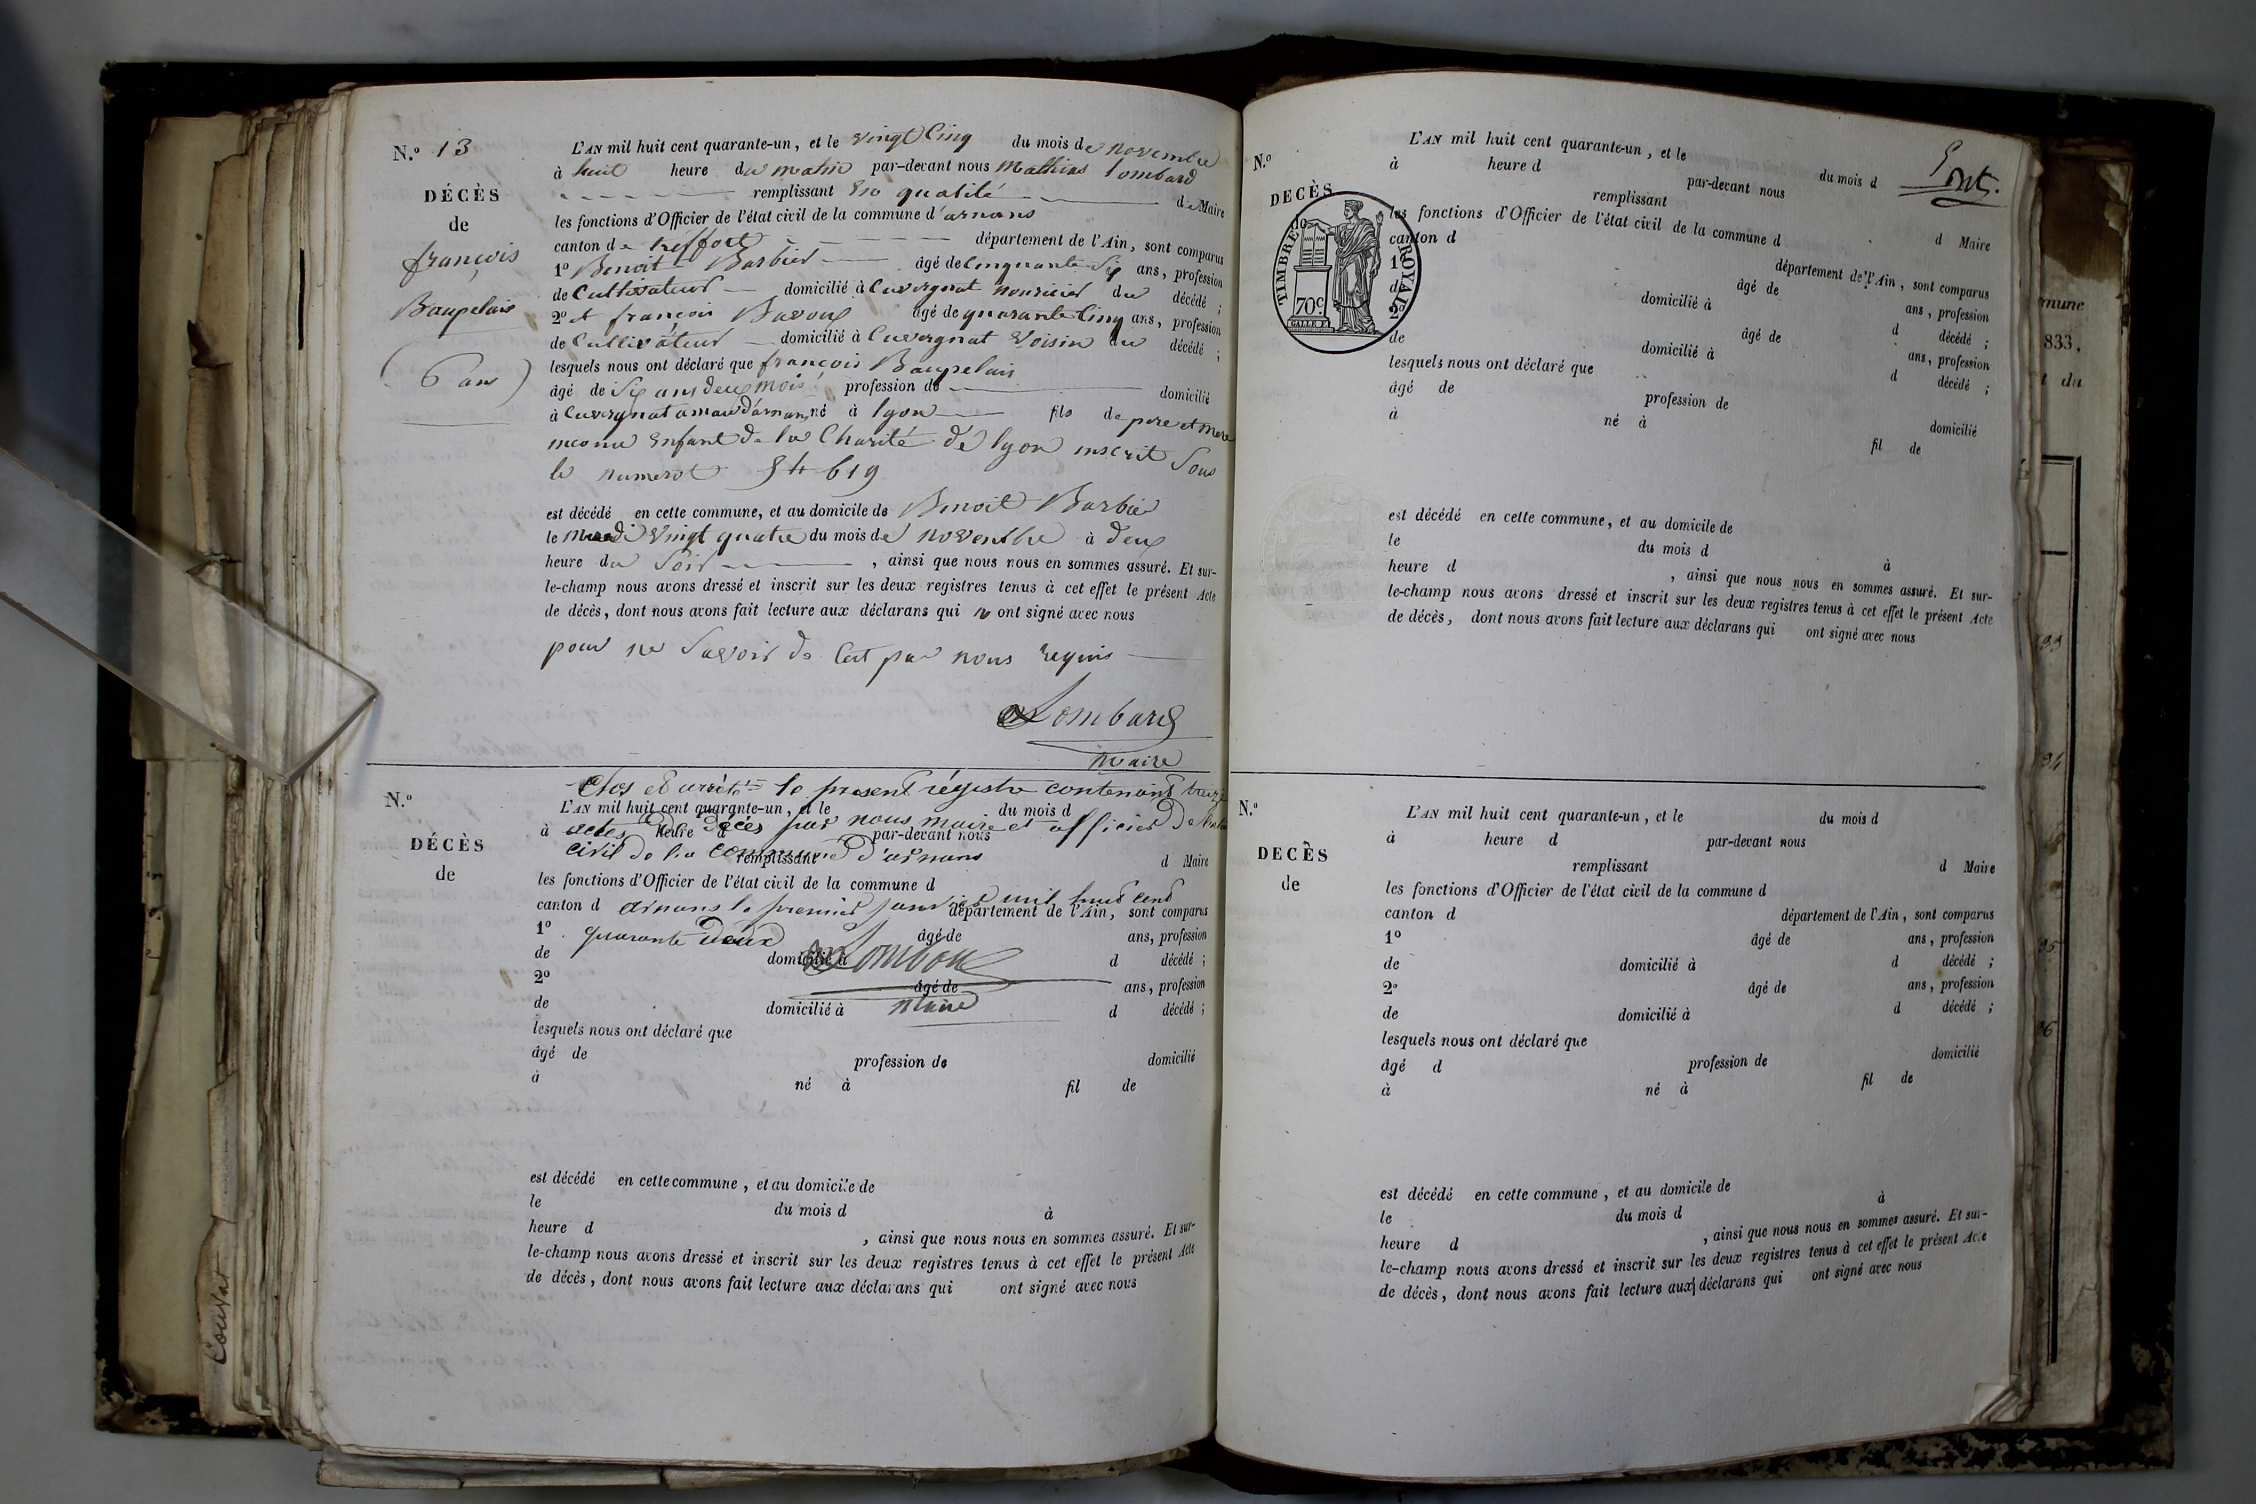 N.º 13
DÉCÈS
de
françois
Baupelais
(6 ans)
L'AN mil huit cent quarante-un, et le vingt Cinq du mois de novembre
à huit heure du matin par-devant nous Mathias Lombard
remplissant En qualité de Maire
les fonctions d'Officier de l'état civil de la commune d'arnans
canton de treffort département de l'Ain, sont comparus
1º Benoit Barbier âgé de Cinquante Six ans, profession
de Cultivateur domicilié à Cuvergnat nouricier du décédé ;
2º et françois Bavoux âgé de quarante Cinq ans, profession
de Cultivateur domicilié à Cuvergnat Voisin du décédé ;
lesquels nous ont déclaré que françois Baupelais
âgé de Six ans deux mois profession de domicilié
à Cuvergnat d'arnans né à lyon fils de pere et mere
inconu Enfant de la Charité de lyon inscrit Sous
le numerot 54619
est décédé en cette commune, et au domicile de Benoit Barbier
le vingt quatre du mois de novembre à deux
heure du Soir , ainsi que nous nous en sommes assuré. Et sur-
le-champ nous avons dressé et inscrit sur les deux registres tenus à cet effet le présent Acte
de décès, dont nous avons fait lecture aux déclarans qui n ont signé avec nous
pour ne Savoir de Cet par nous requis
Lombard
maire
Clos et arrêté le présent régistre contenant treize
N.º
DÉCÈS
de
L'AN mil huit cent quarante-un, et le du mois d
actes de décès par nous maire et officier de l'etat
à heure d par-devant nous
civil de la commune d'arnans
remplissant d Maire
les fonctions d'Officier de l'état civil de la commune d
arnans le premier janvier mil huit cent
canton d département de l'Ain, sont comparus
quarante deux
1º âgé de ans, profession
Lombard
de domicilié à d décédé ;
2º âgé de ans, profession
maire
de domicilié à d décédé ;
lesquels nous ont déclaré que
âgé de profession de domicilié
à né à fil de
est décédé en cette commune, et au domicile de
le du mois d à
heure d , ainsi que nous nous en sommes assuré. Et sur-
le-champ nous avons dressé et inscrit sur les deux registres tenus à cet effet le présent Acte
de décès, dont nous avons fait lecture aux déclarans qui ont signé avec nous
Couvat
N.º
DECÈS
de
TIMBRE ROYAL
70 c.
L'AN mil huit cent quarante-un, et le du mois d
à heure d par-devant nous
remplissant d Maire
les fonctions d'Officier de l'état civil de la commune d
canton d département de l'Ain, sont comparus
1º âgé de ans, profession
d domicilié à d décédé ;
2º âgé de ans, profession
de domicilié à d décédé ;
lesquels nous ont déclaré que
âgé de profession de domicilié
à né à fil de
est décédé en cette commune, et au domicile de
le du mois d à
heure d , ainsi que nous nous en sommes assuré. Et sur-
le-champ nous avons dressé et inscrit sur les deux registres tenus à cet effet le présent Acte
de décès, dont nous avons fait lecture aux déclarans qui ont signé avec nous
N.º
DECÈS
de
L'AN mil huit cent quarante-un, et le du mois d
à heure d par-devant nous
remplissant d Maire
les fonctions d'Officier de l'état civil de la commune d
canton d département de l'Ain, sont comparus
1º âgé de ans, profession
de domicilié à d décédé ;
2º âgé de ans, profession
de domicilié à d décédé ;
lesquels nous ont déclaré que
âgé d profession de domicilié
à né à fil de
est décédé en cette commune, et au domicile de
le du mois d à
heure d , ainsi que nous nous en sommes assuré. Et sur-
le-champ nous avons dressé et inscrit sur les deux registres tenus à cet effet le présent Acte
de décès, dont nous avons fait lecture aux déclarans qui ont signé avec nous
mune
833,
t du